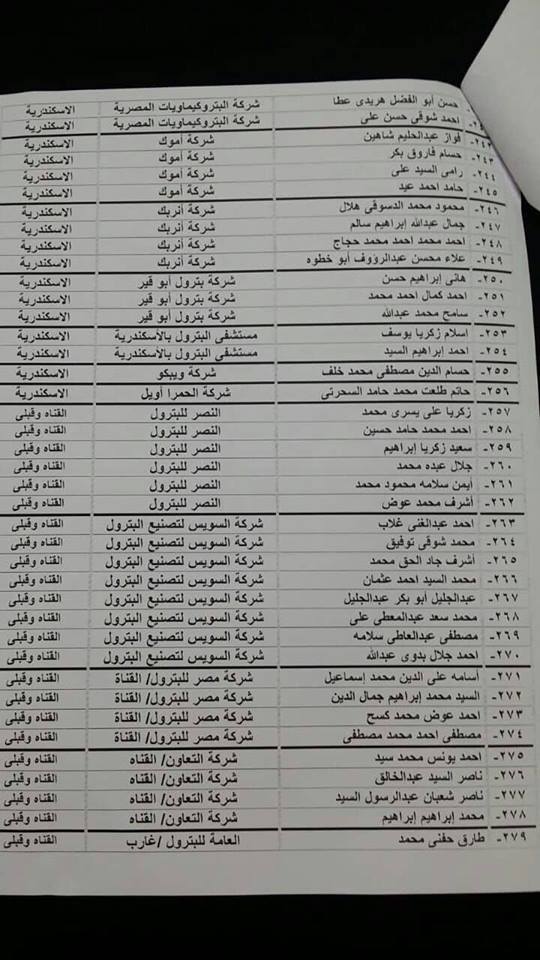 حسن أبو الفضل هريدى عطا شركة البتروكيماويات المصرية الاسكندرية
احمد شوقى حسن على شركة البتروكيماويات المصرية الاسكندرية
٢٤٢- فواز عبدالحليم شاهين شركة أموك الاسكندرية
٢٤٣- حسام فاروق بكر شركة أموك الاسكندرية
٢٤٤- رامى السيد على شركة أموك الاسكندرية
٢٤٥- حامد احمد عيد شركة أموك الاسكندرية
٢٤٦- محمود محمد الدسوقى هلال شركة أنربك الاسكندرية
٢٤٧- جمال عبدالله إبراهيم سالم شركة أنربك الاسكندرية
٢٤٨- احمد محمد احمد محمد حجاج شركة أنربك الاسكندرية
٢٤٩- علاء محسن عبدالرؤوف أبو خطوه شركة أنربك الاسكندرية
٢٥٠- هانى إبراهيم حسن شركة بترول أبو قير الاسكندرية
٢٥١- احمد كمال احمد محمد شركة بترول أبو قير الاسكندرية
٢٥٢- سامح محمد عبدالله شركة بترول أبو قير الاسكندرية
٢٥٣- اسلام زكريا يوسف مستشفى البترول بالأسكندرية الاسكندرية
٢٥٤- احمد إبراهيم السيد مستشفى البترول بالأسكندرية الاسكندرية
٢٥٥- حسام الدين مصطفى محمد خلف شركة ويبكو الاسكندرية
٢٥٦- حاتم طلعت محمد حامد السحرتى شركة الحمرا أويل الاسكندرية
٢٥٧- زكريا على يسرى محمد النصر للبترول القناه وقبلى
٢٥٨- احمد محمد حامد حسين النصر للبترول القناه وقبلى
٢٥٩- سعيد زكريا إبراهيم النصر للبترول القناه وقبلى
٢٦٠- جلال عبده محمد النصر للبترول القناه وقبلى
٢٦١- أيمن سلامه محمود محمد النصر للبترول القناه وقبلى
٢٦٢- أشرف محمد عوض النصر للبترول القناه وقبلى
٢٦٣- احمد عبدالغنى غلاب شركة السويس لتصنيع البترول القناه وقبلى
٢٦٤- محمد شوقى توفيق شركة السويس لتصنيع البترول القناه وقبلى
٢٦٥- أشرف جاد الحق محمد شركة السويس لتصنيع البترول القناه وقبلى
٢٦٦- محمد السيد احمد عثمان شركة السويس لتصنيع البترول القناه وقبلى
٢٦٧- عبدالجليل أبو بكر عبدالجليل شركة السويس لتصنيع البترول القناه وقبلى
٢٦٨- محمد سعد عبدالمعطى على شركة السويس لتصنيع البترول القناه وقبلى
٢٦٩- مصطفى عبدالعاطى سلامه شركة السويس لتصنيع البترول القناه وقبلى
٢٧٠- احمد جلال بدوى عبدالله شركة السويس لتصنيع البترول القناه وقبلى
٢٧١- أسامه على الدين محمد إسماعيل شركة مصر للبترول/ القناة القناه وقبلى
٢٧٢- السيد محمد إبراهيم جمال الدين شركة مصر للبترول/ القناة القناه وقبلى
٢٧٣- احمد عوض محمد كسح شركة مصر للبترول/ القناة القناه وقبلى
٢٧٤- مصطفى احمد محمد مصطفى شركة مصر للبترول/ القناة القناه وقبلى
٢٧٥- احمد يونس محمد سيد شركة التعاون/ القناه القناه وقبلى
٢٧٦- ناصر السيد عبدالخالق شركة التعاون/ القناه القناه وقبلى
٢٧٧- ناصر شعبان عبدالرسول السيد شركة التعاون/ القناه القناه وقبلى
٢٧٨- محمد إبراهيم إبراهيم شركة التعاون/ القناه القناه وقبلى
٢٧٩- طارق حفنى محمد العامة للبترول /غارب القناه وقبلى